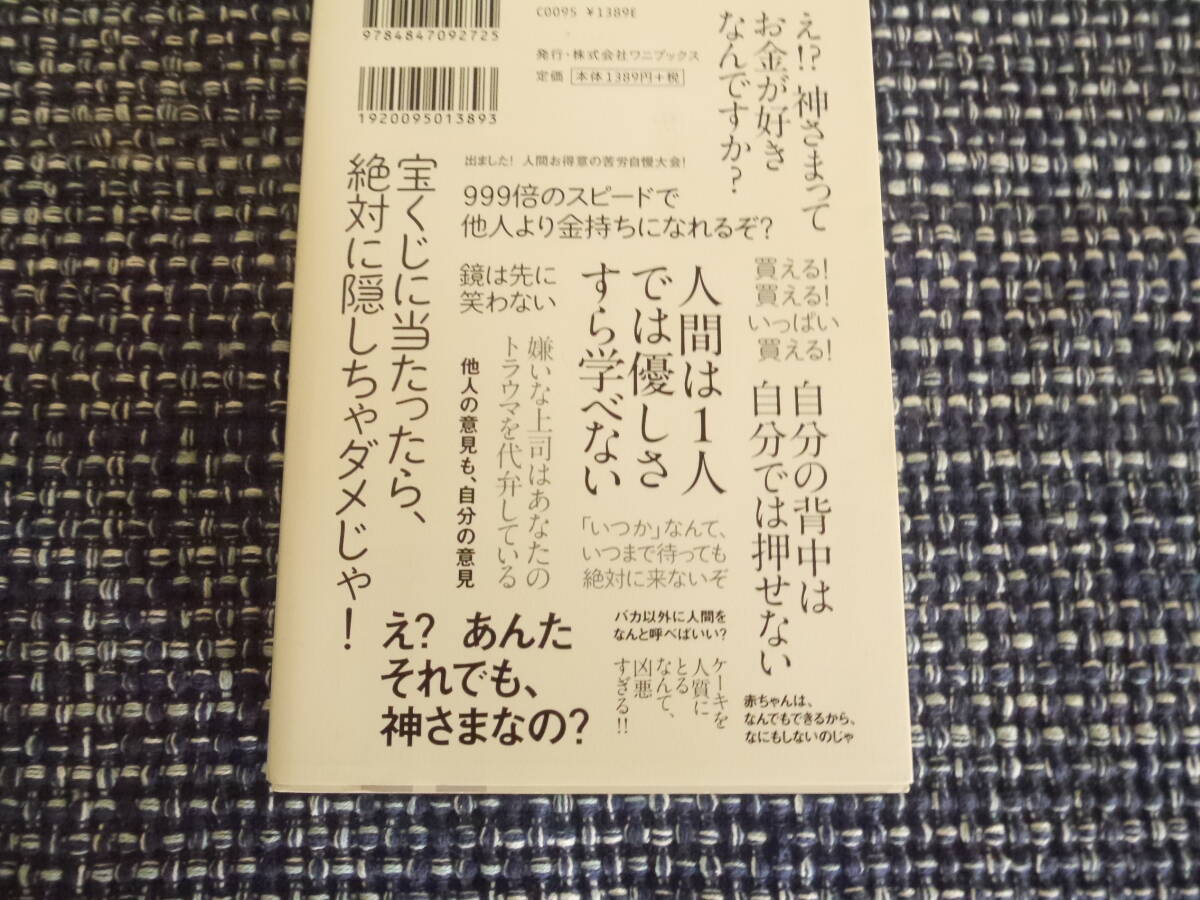 9784847092725
C0095 ¥1389E
発行・株式会社ワニブックス
定価 本体1389円+税
1920095013893
え!? 神さまって
お金が好き
なんですか?
出ました! 人間お得意の苦労自慢大会!
999倍のスピードで
他人より金持ちになれるぞ?
宝くじに当たったら、
絶対に隠しちゃダメじゃ!
鏡は先に
笑わない
人間は1人
では優しさ
すら学べない
買える!
買える!
いっぱい
買える!
嫌いな上司はあなたの
トラウマを代弁している
他人の意見も、自分の意見
自分の背中は
自分では押せない
「いつか」なんて、
いつまで待っても
絶対に来ないぞ
え? あんた
それでも、
神さまなの?
バカ以外に人間を
なんと呼べばいい?
ケーキを
人質に
とる
なんて、
凶悪
すぎる!!
赤ちゃんは、
なんでもできるから、
なにもしないのじゃ